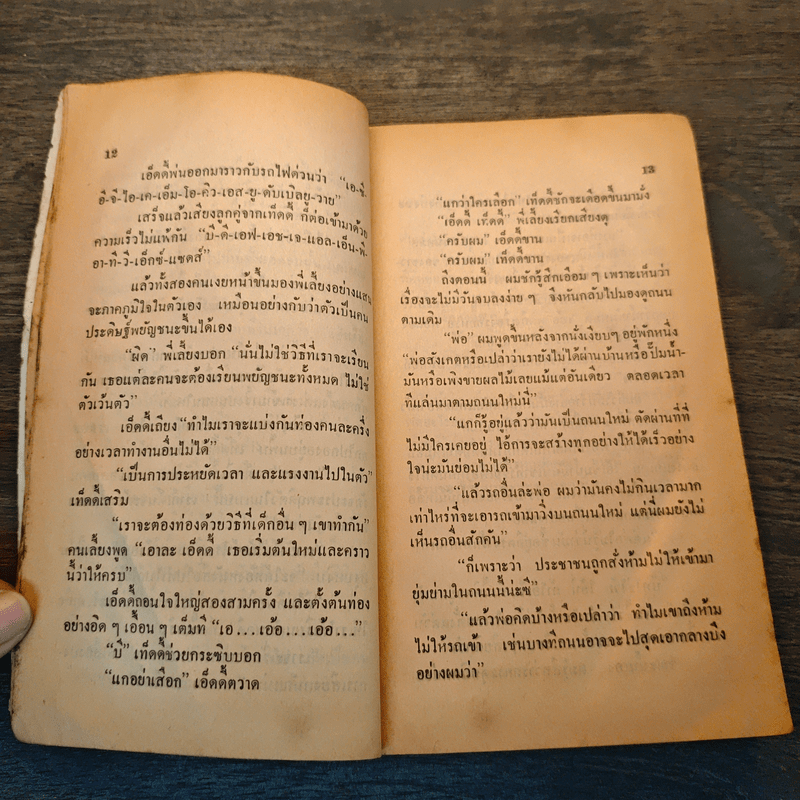 12
เอ็ดดี้พ่นออกมาราวกับรถไฟด่วนว่า “เอ-ซี-
อี-จี-ไอ-เค-เอ็ม-โอ-คิว-เอส-ยู-ดับเบิลยู-วาย”
เสร็จแล้วเสียงลูกคู่จากเท็ดดี้ ก็ต่อเข้ามาด้วย
ความเร็วไม่แพ้กัน “บี-ดี-เอฟ-เอช-เจ-แอล-เอ็น-พี-
อา-ที-วี-เอ็กซ์-แซดส์”
แล้วทั้งสองคนเงยหน้าขึ้นมองพี่เลี้ยงอย่างแสน
จะภาคภูมิใจในตัวเอง เหมือนอย่างกับว่าตัวเป็นคน
ประดิษฐ์พยัญชนะขึ้นได้เอง
“ผิด” พี่เลี้ยงบอก “นั่นไม่ใช่วิธีที่เราจะเรียน
กัน เธอแต่ละคนจะต้องเรียนพยัญชนะทั้งหมด ไม่ใช่
ตัวเว้นตัว”
เอ็ดดี้เถียง “ทำไมเราจะแบ่งกันท่องคนละครึ่ง
อย่างเวลาทำงานอื่นไม่ได้”
“เป็นการประหยัดเวลา และแรงงานไปในตัว”
เท็ดดี้เสริม
“เราจะต้องท่องด้วยวิธีที่เด็กอื่น ๆ เขาทำกัน”
คนเลี้ยงพูด “เอาละ เอ็ดดี้ เธอเริ่มต้นใหม่และคราว
นี้ว่าให้ครบ”
เอ็ดดี้ถอนใจใหญ่สองสามครั้ง และตั้งต้นท่อง
อย่างอิด ๆ เอื้อน ๆ เต็มที “เอ...เอ้อ...เอ้อ...”
“บี” เท็ดดี้ช่วยกระซิบบอก
“แกอย่าเสือก” เอ็ดดี้ตวาด
13
“แกว่าใครเลือก” เท็ดดี้ชักจะเดือดขึ้นมามั่ง
“เอ็ดดี้ เท็ดดี้” พี่เลี้ยงเรียกเสียงดุ
“ครับผม” เอ็ดดี้ขาน
“ครับผม” เท็ดดี้ขาน
ถึงตอนนี้ ผมชักรู้สึกเอือม ๆ เพราะเห็นว่า
เรื่องจะไม่มีวันจบลงง่าย ๆ จึงหันกลับไปมองดูถนน
ตามเดิม
“พ่อ” ผมพูดขึ้นหลังจากนั่งเงียบๆ อยู่พักหนึ่ง
“พ่อสังเกตหรือเปล่าว่าเรายังไม่ได้ผ่านบ้านหรือปั๊มน้ำ-
มันหรือเพิงขายผลไม้เลยแม้แต่อันเดียว ตลอดเวลา
ที่แล่นมาตามถนนใหม่นี่”
“แกก็รู้อยู่แล้วว่ามันเป็นถนนใหม่ ตัดผ่านที่ที่
ไม่มีใครเคยอยู่ ไอ้การจะสร้างทุกอย่างให้ได้เร็วอย่าง
ใจน่ะมันย่อมไม่ได้”
“แล้วรถอื่นล่ะพ่อ ผมว่ามันคงไม่กินเวลามาก
เท่าไหร่ที่จะเอารถเข้ามาวิ่งบนถนนใหม่ แต่นี่ผมยังไม่
เห็นรถอื่นสักคัน”
“ก็เพราะว่า ประชาชนถูกสั่งห้ามไม่ให้เข้ามา
ยุ่มย่ามในถนนนี้น่ะซี”
“แล้วพ่อคิดบ้างหรือเปล่าว่า ทำไมเขาถึงห้าม
ไม่ให้รถเข้า เช่นบางทีถนนอาจจะไปสุดเอากลางบึง
อย่างผมว่า”